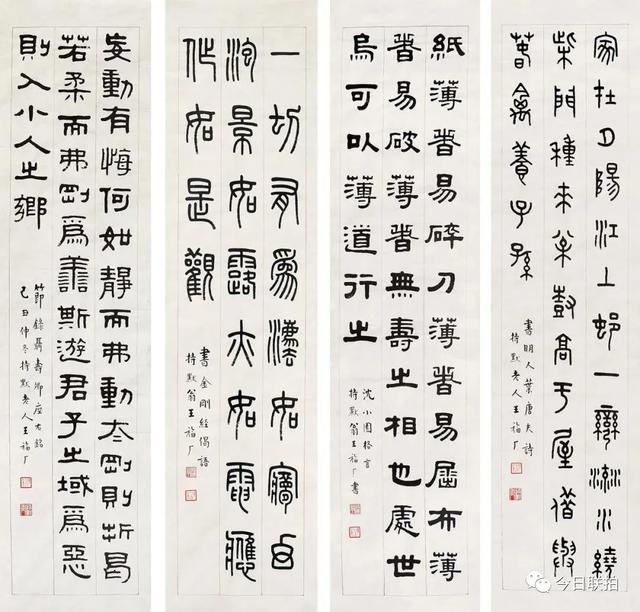 家在夕陽江上邨一灣流水繞
柴門種來松樹高于屋借與
春禽養子孫
書明人葉唐夫詩
持默老人王福厂
紙薄者易碎刀薄者易屈布薄
者易破薄者無壽之相也處世
烏可以薄道行之
沈小園格言
持默翁王福厂書
一切有爲灋如㝱幻
泡景如露亦如電應
作如是觀
書金剛經偈語
持默翁王福厂
妄動有悔何如靜而弗動太剛則折曷
若柔而弗剛爲善斯遊君子之域爲惡
則入小人之鄉
節錄聶壽卿座右銘
己丑仲冬持默老人王福厂
今日联拍